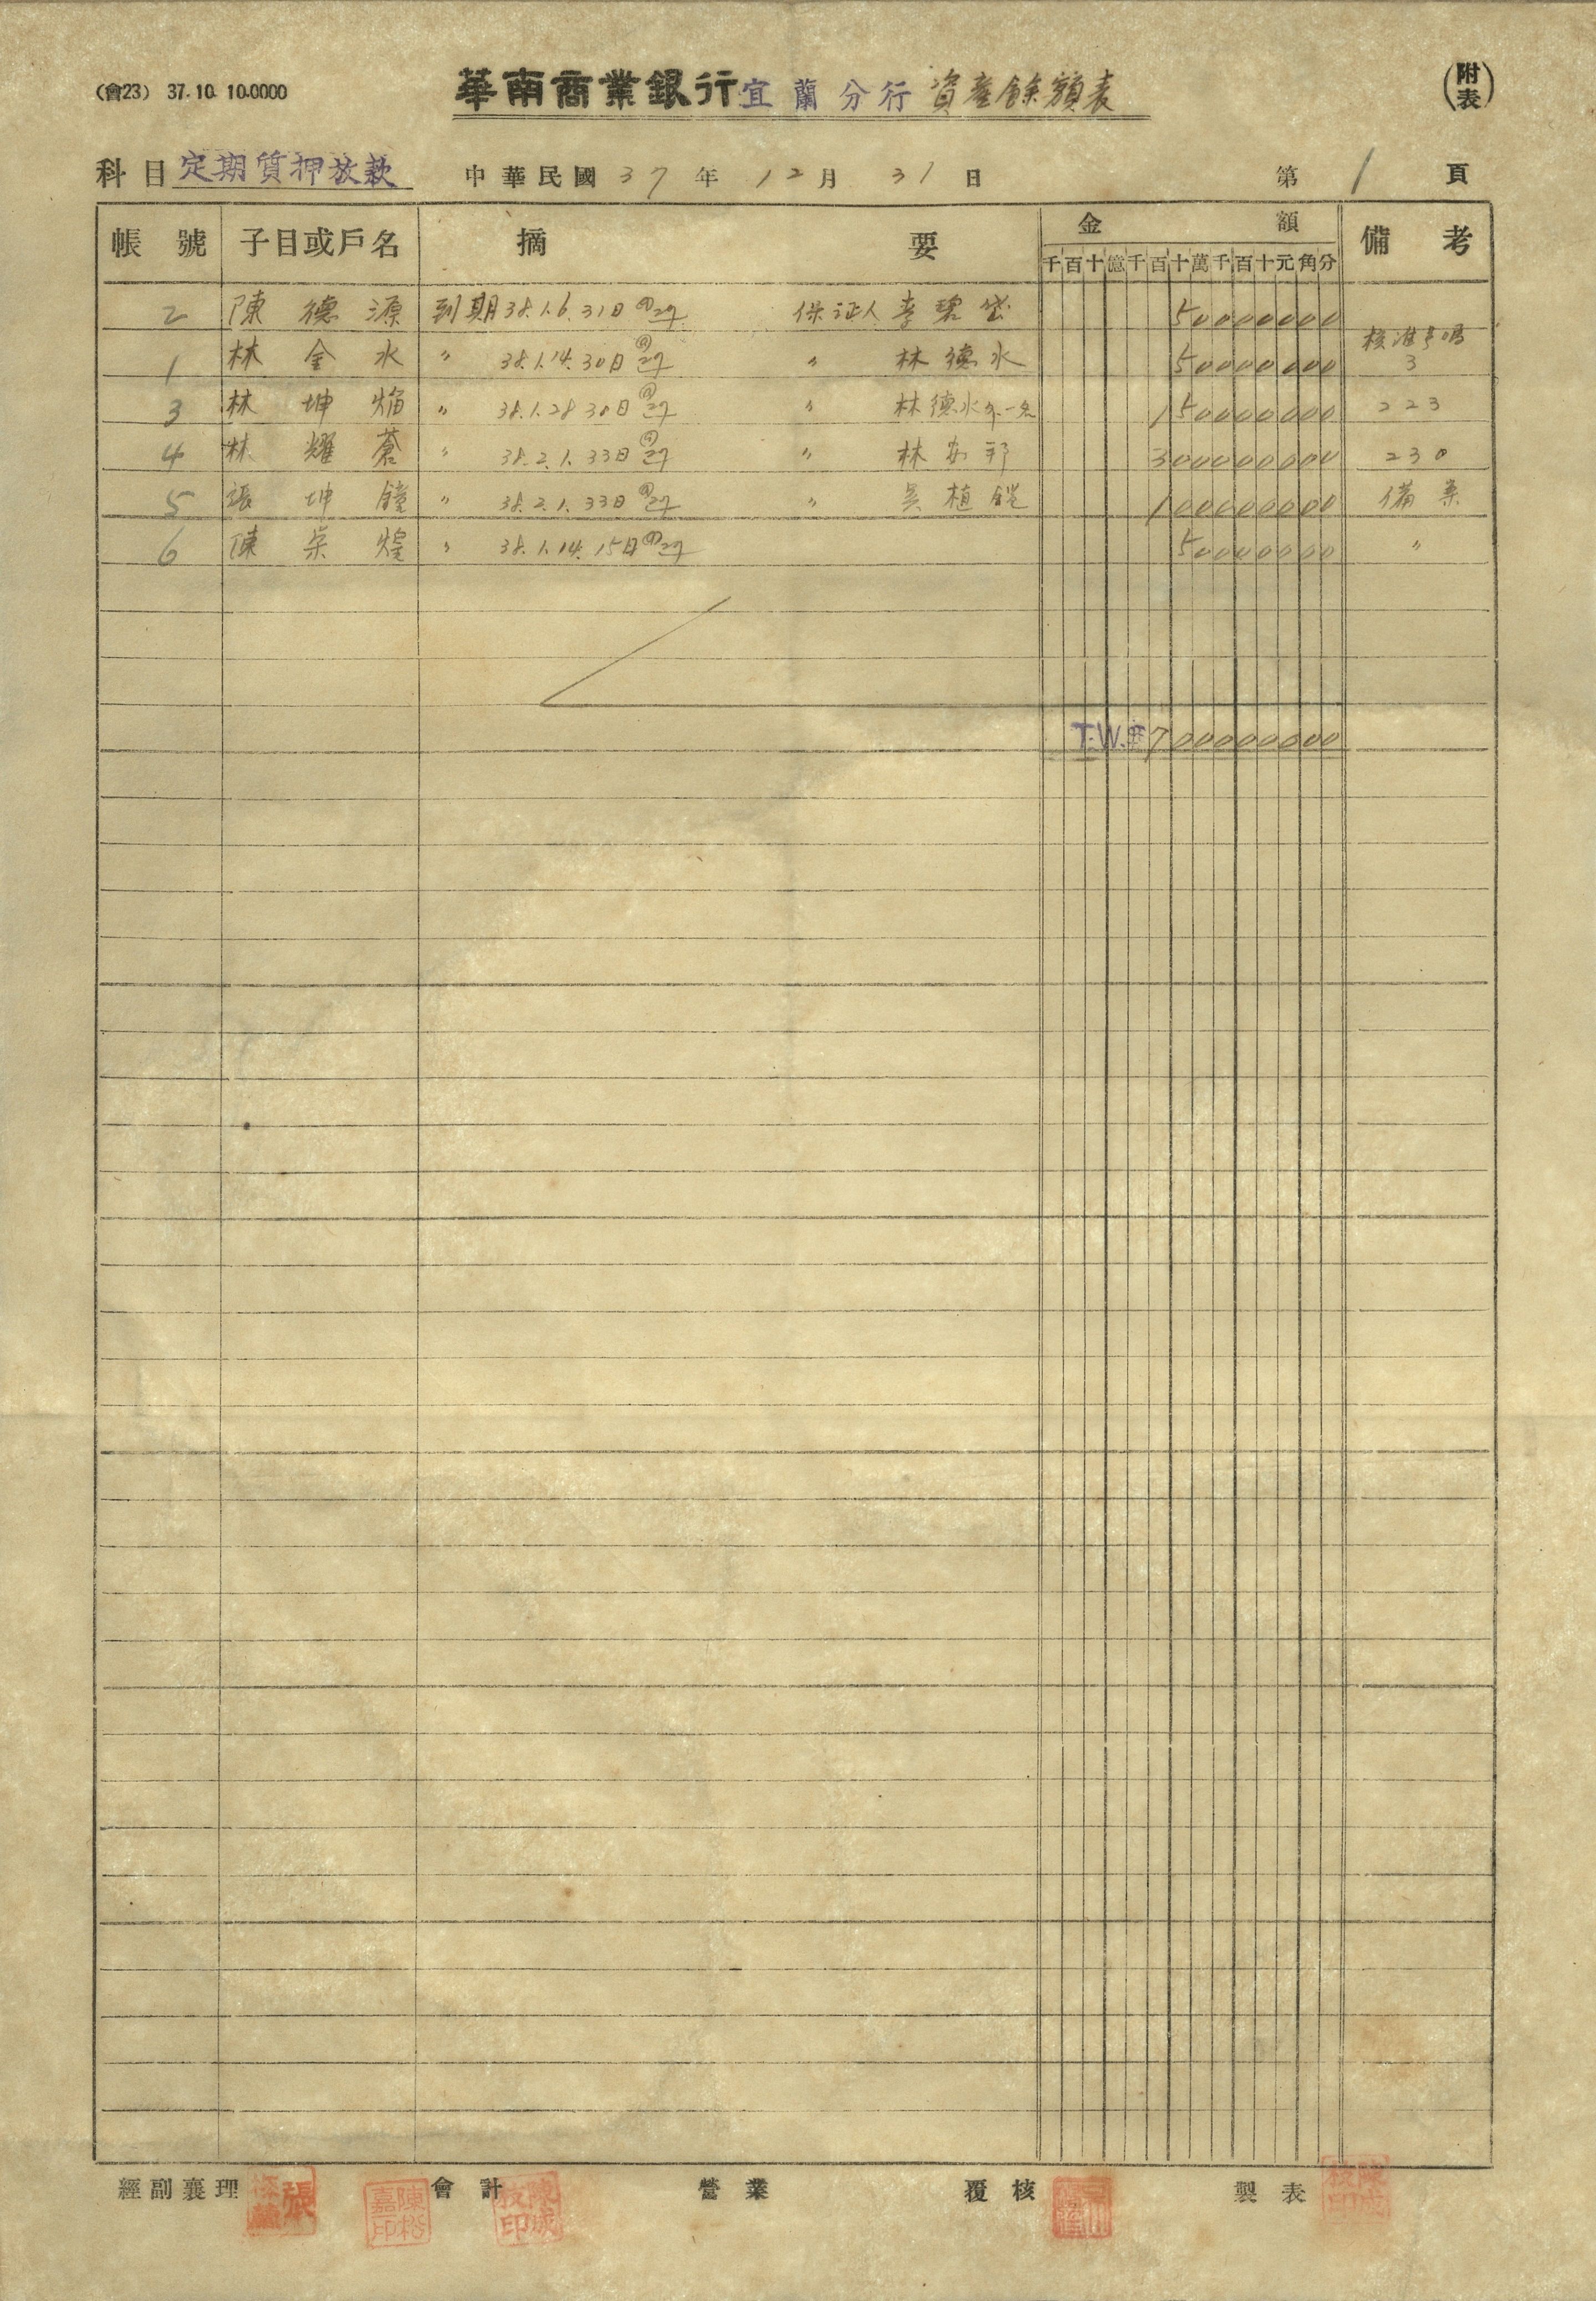 (會23) 37.10.10.0000
華南商業銀行宜蘭分行資產餘額表
(附表)
科目 定期質押放款 中華民國37年12月31日 第1頁
帳號 子目或戶名 摘要 金額 備考
千百十億千百十萬千百十元角分
2 陳德源 到期38.1.6. 31日 保证人 李 50000000
核准号碼
1 林金水 〃 38.1.14. 30日 〃 林德水 50000000 3
3 林坤焰 〃 38.1.28 30日 〃 林德水外一名 150000000 223
4 林耀蒼 〃 38.2.1. 33日 〃 林 邦 300000000 230
5 張坤鐘 〃 38.2.1. 33日 〃 吳植 100000000 備案
6 陳 煌 〃 38.1.14. 15日 50000000 〃
T.W. 700000000
經副襄理 會計 營業 覆核 製表